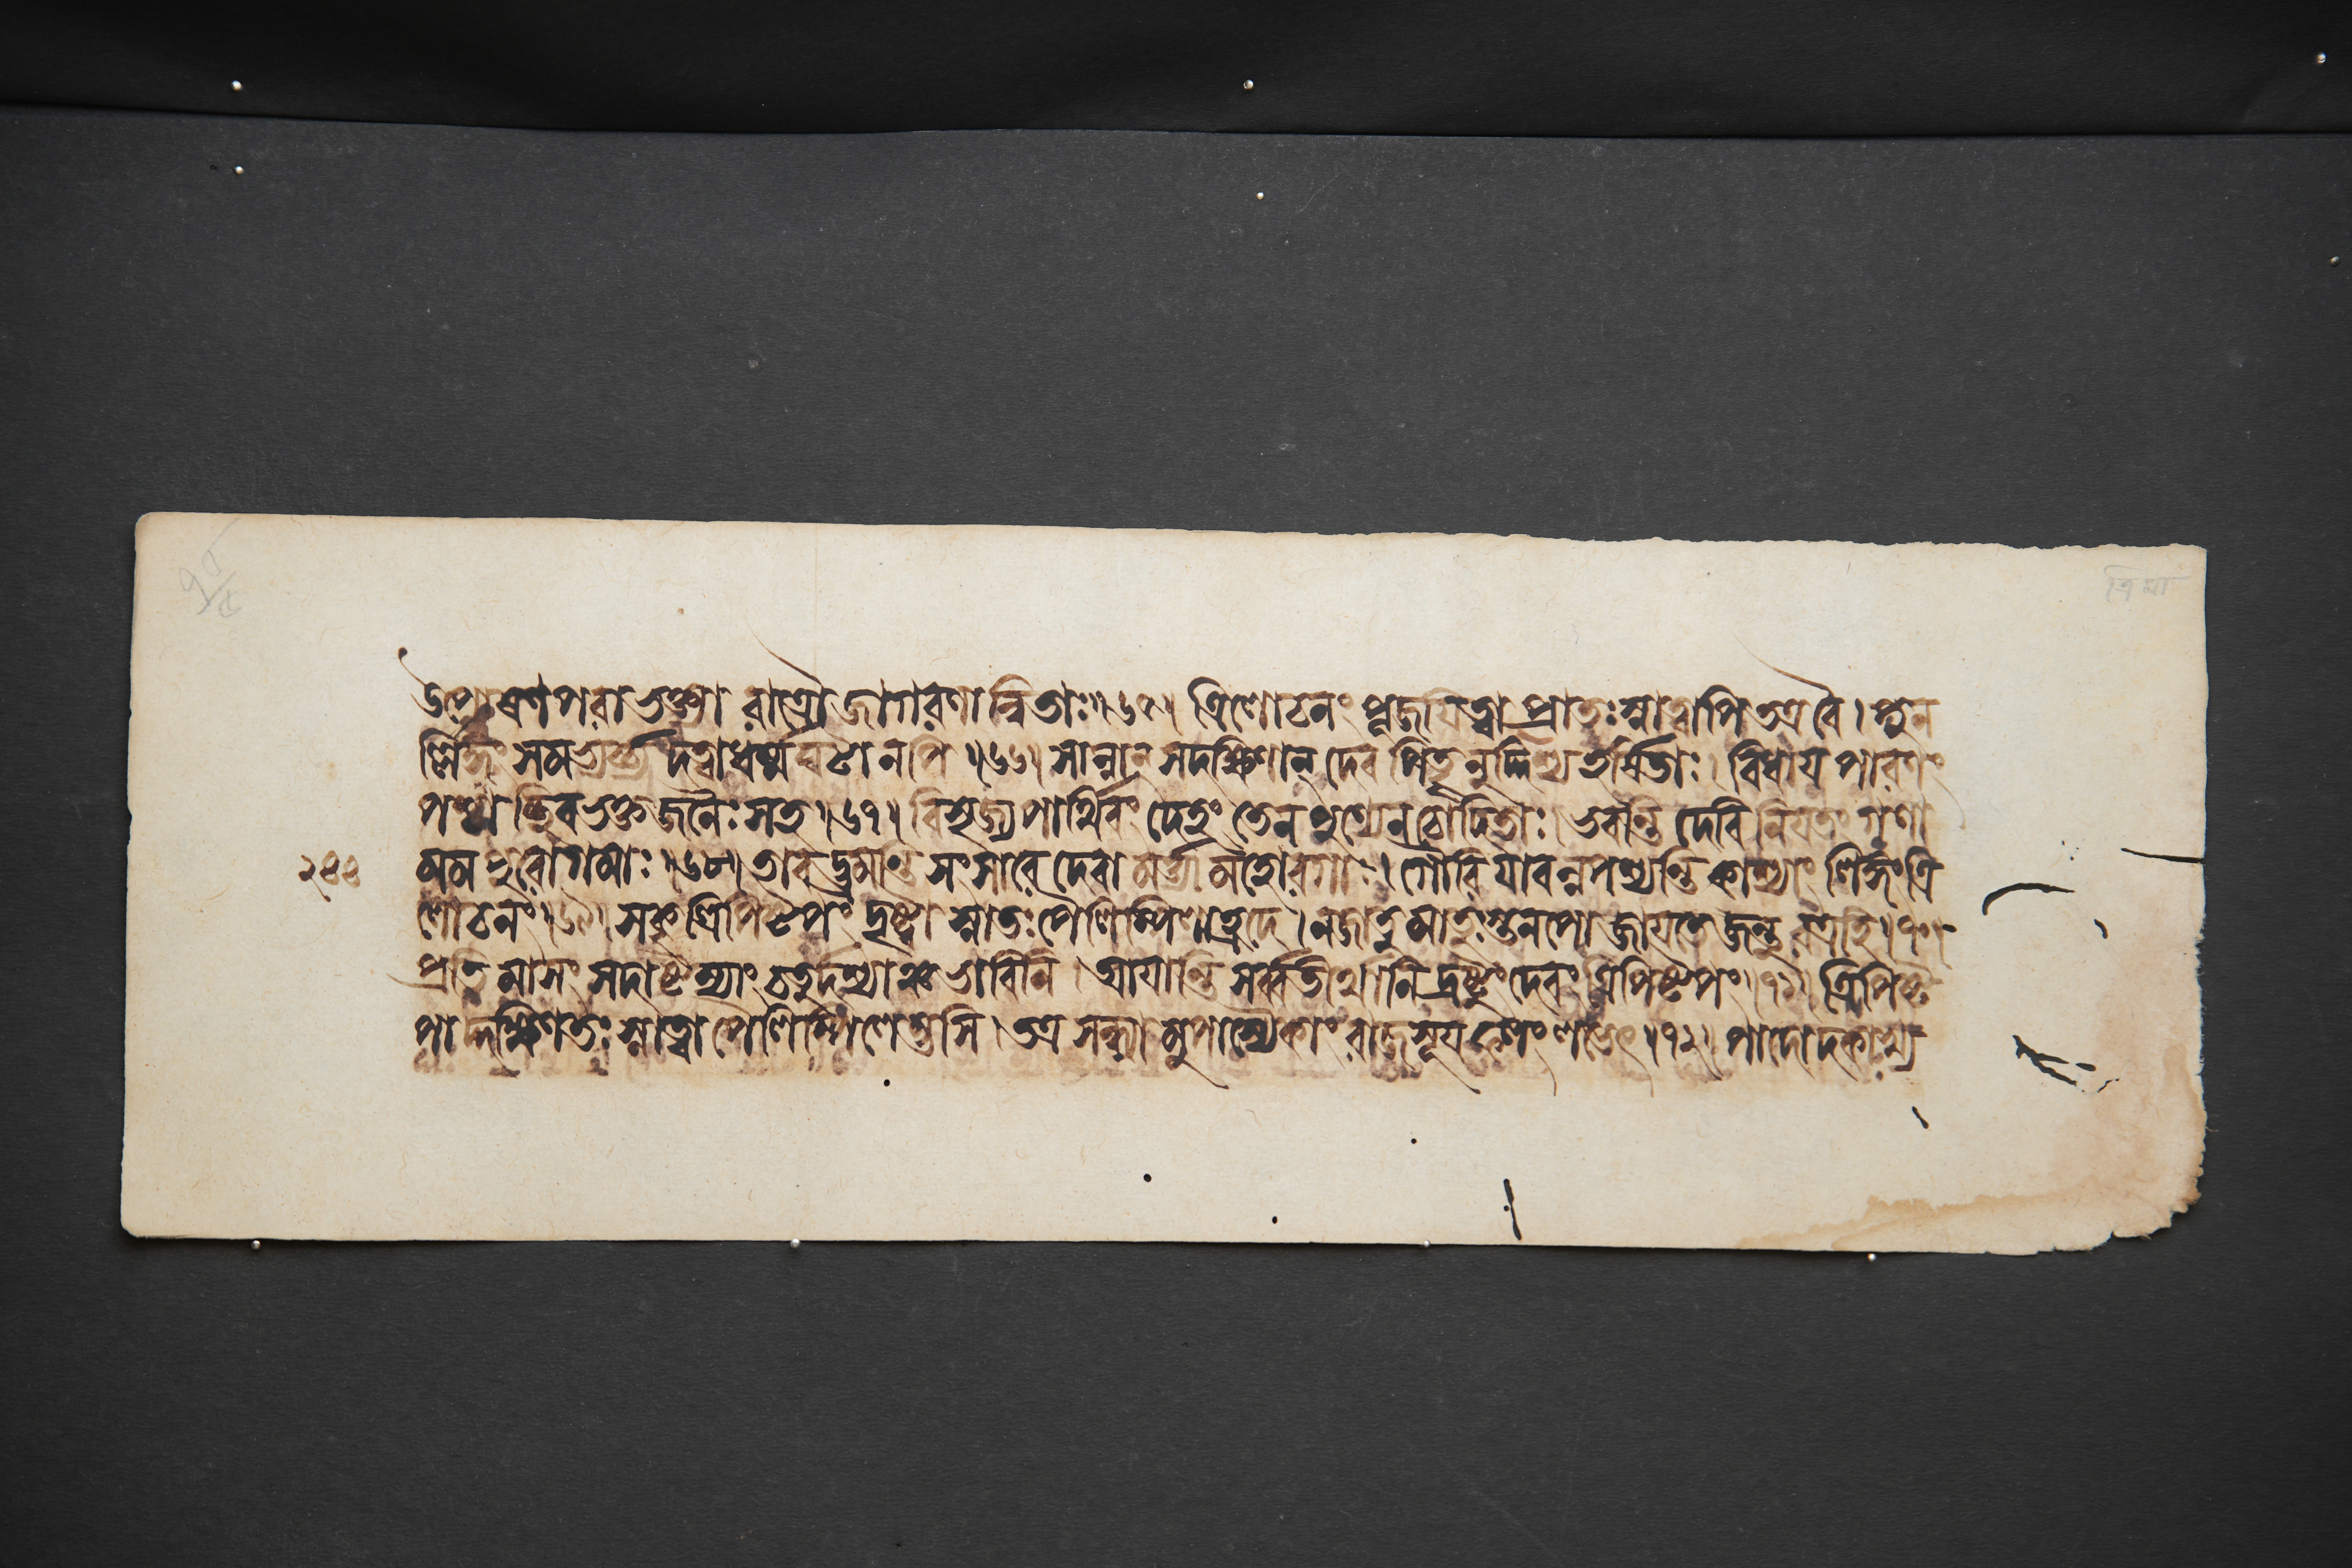 উপোষণপরাভক্ত্যা রাত্রৌজাগরণান্বিতাঃ॥৬৫॥ ত্রিলোচনং পূজয়িত্বা প্রাতঃস্নাত্বাপি তত্রবৈ। পুন
র্ল্লিঙ্গং সমভ্যর্চ্চ্য দত্বাধর্ম্মঘটানপি ॥৬৬॥ সান্নান সদক্ষিণান্ দেব পিতৄনুদ্দিশ্য হর্ষিতাঃ। বিধায় পারণং
পশ্চাচ্ছিবভক্তজনৈঃসহ॥৬৭॥ বিসৃজ্য পার্থিবং দেহং তেন পুণ্যেন চোদিতাঃ। ভবন্তি দেবি নিয়তং গণা
মম পুরোগমাঃ॥৬৮॥ তাবদ্ভ্রমন্তি সংসারে দেবা মর্ত্ত্যা মহোরগাঃ। গৌরি যাবন্নপশ্যন্তি কাশ্যাং লিঙ্গং ত্রি
লোচনং॥৬৯॥ সকৃত্ত্রিপিষ্টপং দৃষ্ট্বা স্নাতঃ পৈলিপিলেহ্রদে। নজাতু মাতুঃস্তনপো জায়তে জন্তুরত্রহি॥৭০॥
প্রতি মাসং সদাষ্টম্যাং চতুর্দশ্যাঞ্চ ভাবিনি। আয়ান্তি সর্ব্বতীর্থানি দ্রষ্টুং দেবং ত্রিপিষ্টপং॥৭১॥ ত্রিপিষ্ট
পাদ্দক্ষিণতঃ স্নাত্বা পৈলিপিলেম্ভসি। তত্র সন্ধ্যামুপাস্যৈকাং রাজসূয় ফলং লভেৎ॥৭২॥ পাদোদকাখ্য
২৪৪